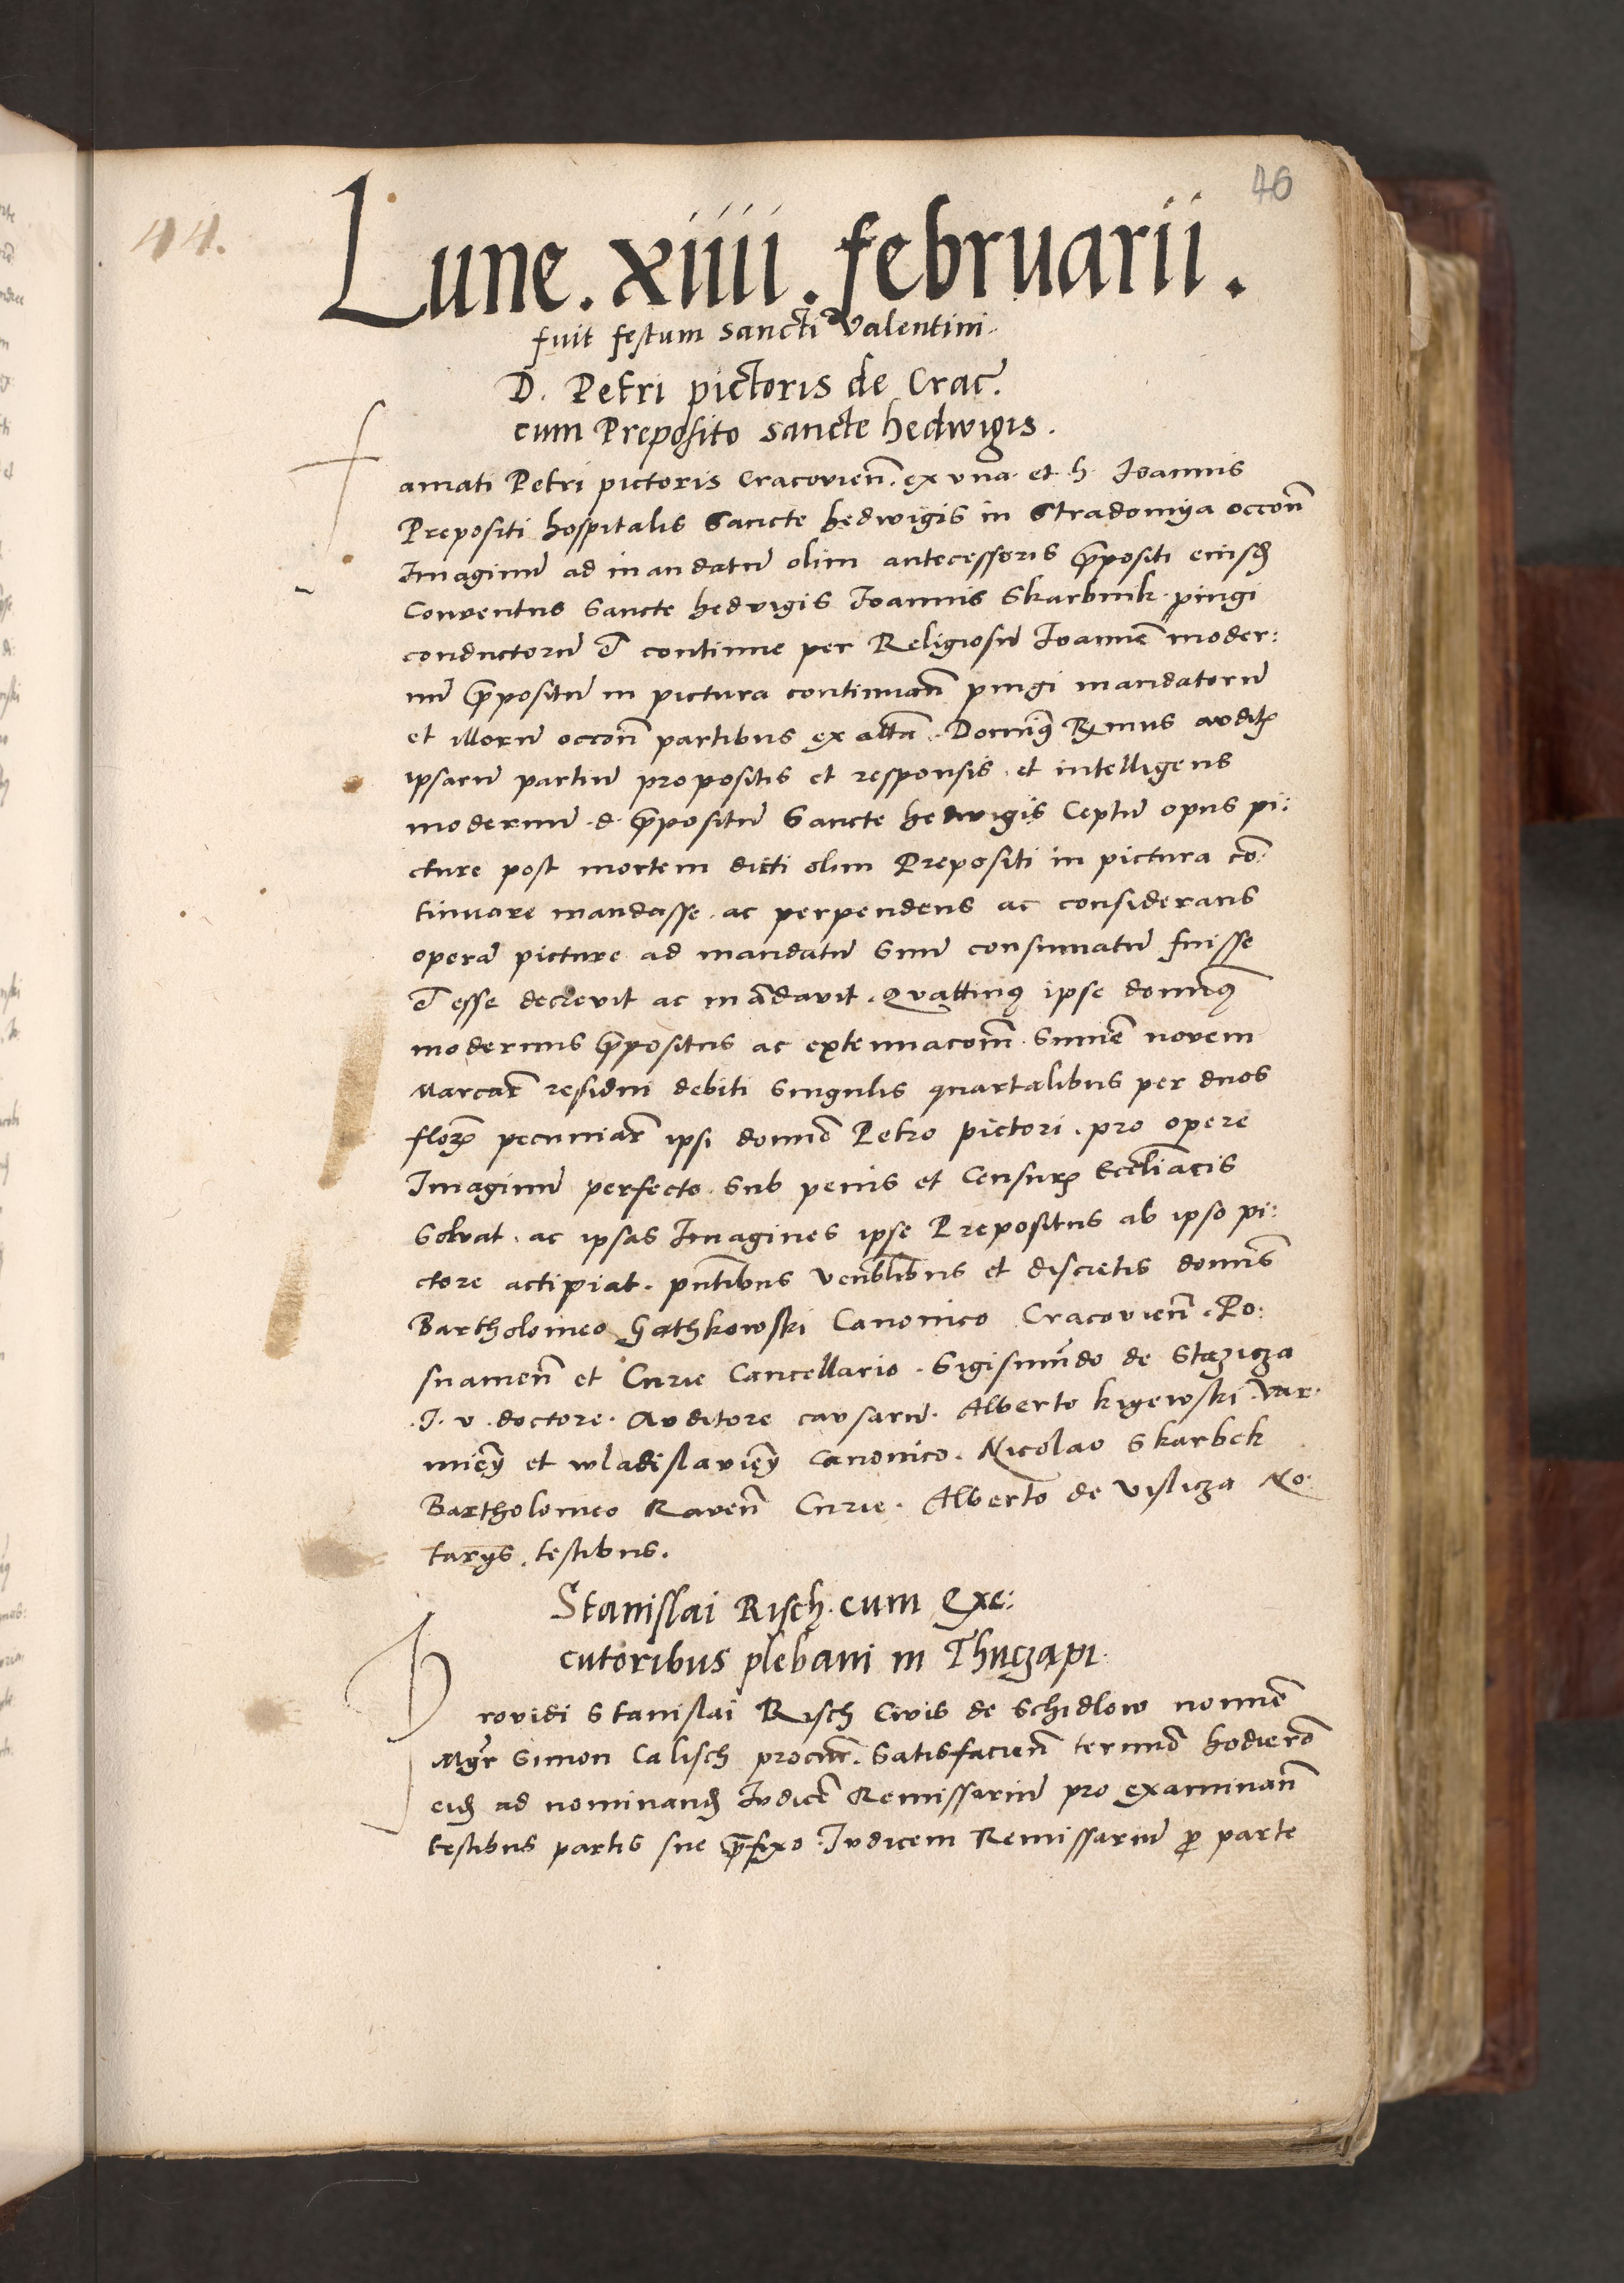 46
44.
Lune. xiiii. februarii.
fuit festum sancti Valentini.
D. Petri pictoris de Crac̃.
cum Preposito sancte hedwigis.
famati Petri pictoris Cracovien̄. ex vna et h. Ioannis
Prepositi hospitalis Sancte hedwigis in Stradomya occon̄
Imaginū ad mandatū olim antecessoris p̄positi eiusđ
Conventus Sancte hedvigis Ioannis Skarbnik pingi
conductorū & continue per Religiosū Ioannē moder:
nū p̄positū in pictura continuan̄ pingi mandatorū
et illorū occon̄ partibus ex alt̄a. Domin9 R̄mus audit̃
ipsarū partiū propositis et responsis et intelligens
modernū d. p̄positū Sancte hedwigis Ceptū opus pi:
cture post mortem dicti olim Prepositi in pictura cō:
tinuare mandasse. ac perpendens ac considerans
operā picture ad mandatū Suū consumatū fuisse
& esse decrevit ac mādavit. Quattin9 ipse domin9
modernus p̄positus ac extenuacōm̄ Summē novem
Marcar̄ residui debiti Singulis quartalibus per duos
flor̃ pecuniar̄ ipsi domīo Petro pictori. pro opere
Imaginū perfecto. Sub penis et Censur̃ Eccl̄iacis
Solvat. ac ipsas Imagines ipse Prepositus ab ipso pi:
ctore accipiat. pn̄tibus ven̄blibus et discretis domīs
Bartholomeo Gathkowski Canonico Cracovien̄. Po:
snamen̄ et Curie Cancellario. Sigismūdo de Stazicza
I. v. doctore. Auditore causarū. Alberto kigewski. Var:
mieņ̄ et wladislavieņ̄ Canonico. Nicolao Skarbek
Bartholomeo Raven̄ Curie. Alberto de Visliza No:
tarys. testibus.
Stanislai Risch. cum Exe:
cutoribus plebani in Thuczapi.
Providi Stanislai Risch Civis de Schidlow nomīe
Mgr̃ Simon Calisch procur̄. Satisfacien̄ termīo hodierō
eiđ ad nominanđ Iudicē Remissariū pro examinan̄
testibus partis sue p̄fixo. Iudicem Remissariū ꝓ parte